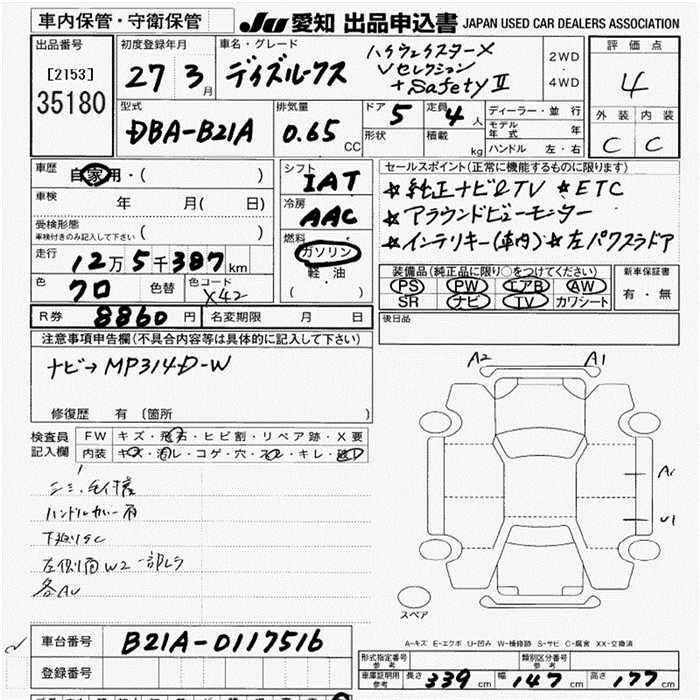 車内保管・守衛保管 JU 愛知 出品申込書 JAPAN USED CAR DEALERS ASSOCIATION
出品番号 初度登録年月 車名・グレード 評価点
[2153] 27 3月 デイズルークス ハイウェイスターX 2WD 4
35180 Vセレクション
+SafetyII 4WD 外装 内装
型式 排気量 ドア 定員 ディーラー・並行 C C
DBA-B21A 0.65 CC 5 4人 モデル年式 年
形状 積載 kg ハンドル 左・右
車歴 自家用・( ) シフト IAT セールスポイント(正常に機能するものに限ります)
車検 年 月( 日) 冷房 AAC ☆純正ナビ&TV ☆ETC
受検形態 ( ) ☆アラウンドビューモニター
車検付きのみ記入して下さい 燃料 ☆インテリキー(車内)☆左パワスラドア
走行 12万5千387km ガソリン・軽油 ( ) 装備品(純正品に限り○をつけてください) 新車保証書
色 クロ 色替 色コード X42 PS PW エアB AW 有・無
SR ナビ TV カワシート
R券 8860円 名変期限 月 日 後日品
注意事項申告欄(不具合内容等は具体的に記入して下さい)
ナビ→MP314D-W A2 A1
修復歴 有 [箇所 ]
検査員 FW キズ・飛石・ヒビ割・リペア跡・X要
記入欄 内装 キズ・汚レ・コゲ・穴・スレ・キレ・破レ
ハンドルカバー有 U1
左側面W2
各AU スペア
車台番号 B21A-0117516 A-キズ E-エクボ U-凹み W-補修跡 S-サビ C-腐食 XX-交換済
登録番号 形式指定番号 参考 類別区分番号 参考
車庫証明用 参考 長さ 339 cm 幅 147 cm 高さ 177 cm